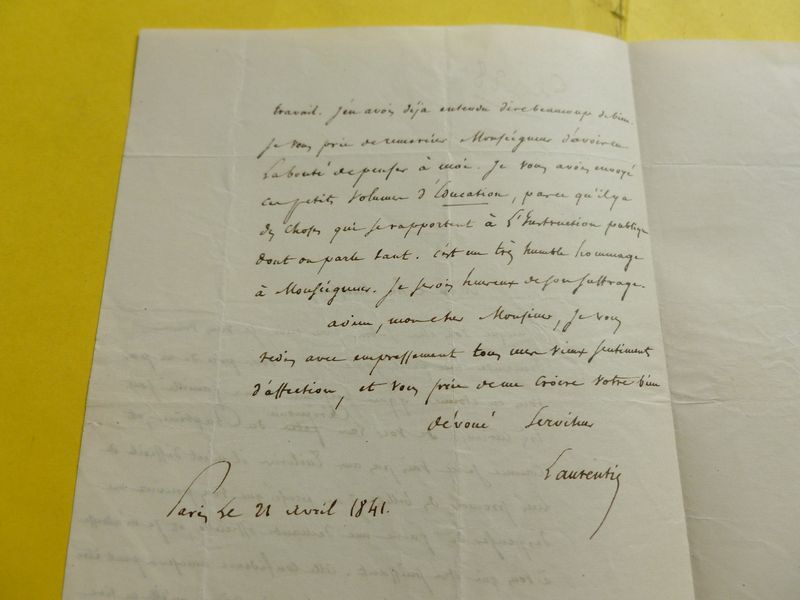 travail. J'en avois déja entendu dire beaucoup de bien.
Je vous prie de remercier Monseigneur d'avoir eu
la bonté de penser à moi. Je vous avois envoyé
ces petits volumes d'Education, parce qu'il y a
des choses qui se rapportent à l'Instruction publique
dont on parle tant. C'est un très humble hommage
à Monseigneur. Je serois heureux de son suffrage.
adieu, mon cher Monsieur, Je vous
redis avec empressement tous mes vieux sentimens
d'affection, et vous prie de me croire votre bien
dévoué serviteur
Laurentie
Paris le 21 avril 1841.